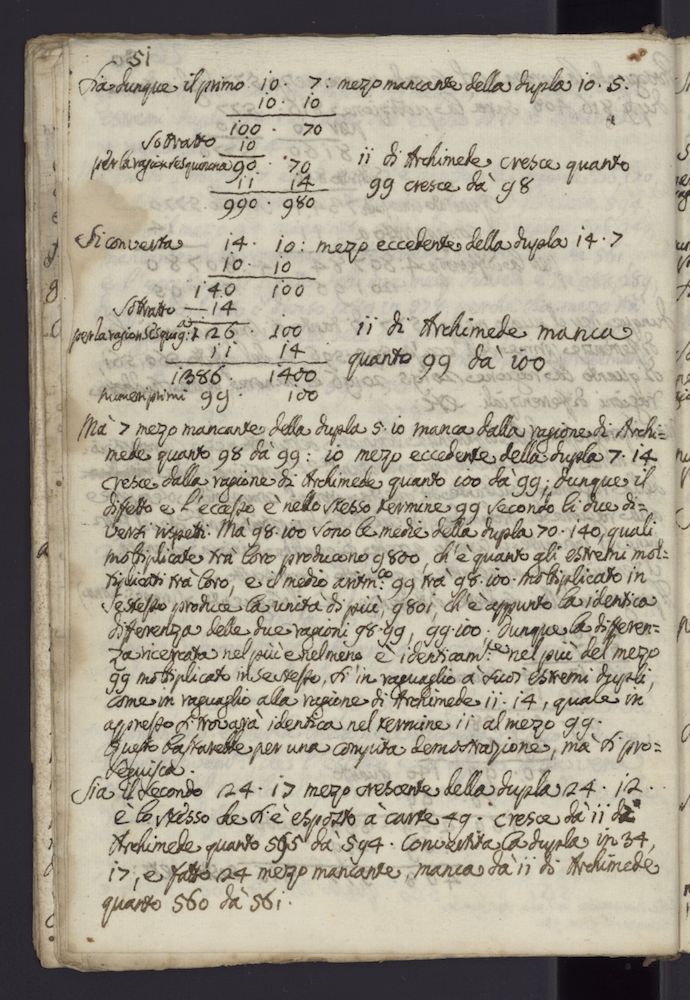 51
Sia dunque il primo 10 · 7 : mezo mancante della dupla 10 · 5 ·
10 · 10
100 · 70
Sottratto 10
per la ragion sesquinona 90 · 70 11 di Archimede cresce quanto
11 14 99 cresce dà 98
990 · 980
Si converta 14 · 10 : mezo eccedente della dupla 14 · 7
10 · 10
140 100
Sottratto — 14
per la ragion sesquig:ª 126 · 100 11 di Archimede manca
11 14 quanto 99 dà 100
1386 · 1400
numeri primi 99 · 100
Mà 7 mezo mancante della dupla 5 · 10 manca dalla ragione di Archi=
mede quanto 98 dà 99 : 10 mezo eccedente della dupla 7 · 14
cresce dalla ragione di Archimede quanto 100 dà 99 ; dunque il
difetto e l'eccesso è nello stesso termine 99 secondo li due di=
versi rispetti · Mà 98 · 100 sono le medie della dupla 70 · 140, quali
moltiplicate trà loro producono 9800, ch'è quanto gli estremi mol=
tiplicati trà loro, e il medio aritm:co 99 trà 98 · 100 · moltiplicato in
se stesso produce la unità di più, 9801 ch'è appunto la identica
differenza delle due ragioni 98 · 99, 99 · 100 · Dunque la differen=
za ricercata nel più e nel meno è identicam:te nel più del mezo
99 moltiplicato in se stesso, sì in raguaglio a suoi estremi dupli,
come in raguaglio alla ragione di Archimede 11 · 14, quale in
appresso si trovarà identica nel termine 11 al mezo 99 ·
Questo bastarebbe per una compita demostrazione, mà si pro=
seguisca ·
Sia il secondo 24 · 17 mezo crescente della dupla 24 · 12 ·
è lo stesso che si è esposto à carte 49 · cresce dà 11 di
Archimede quanto 595 dà 594 · Convertita la dupla in 34,
17, e fatto 24 mezo mancante, manca dà 11 di Archimede
quanto 560 dà 561 ·